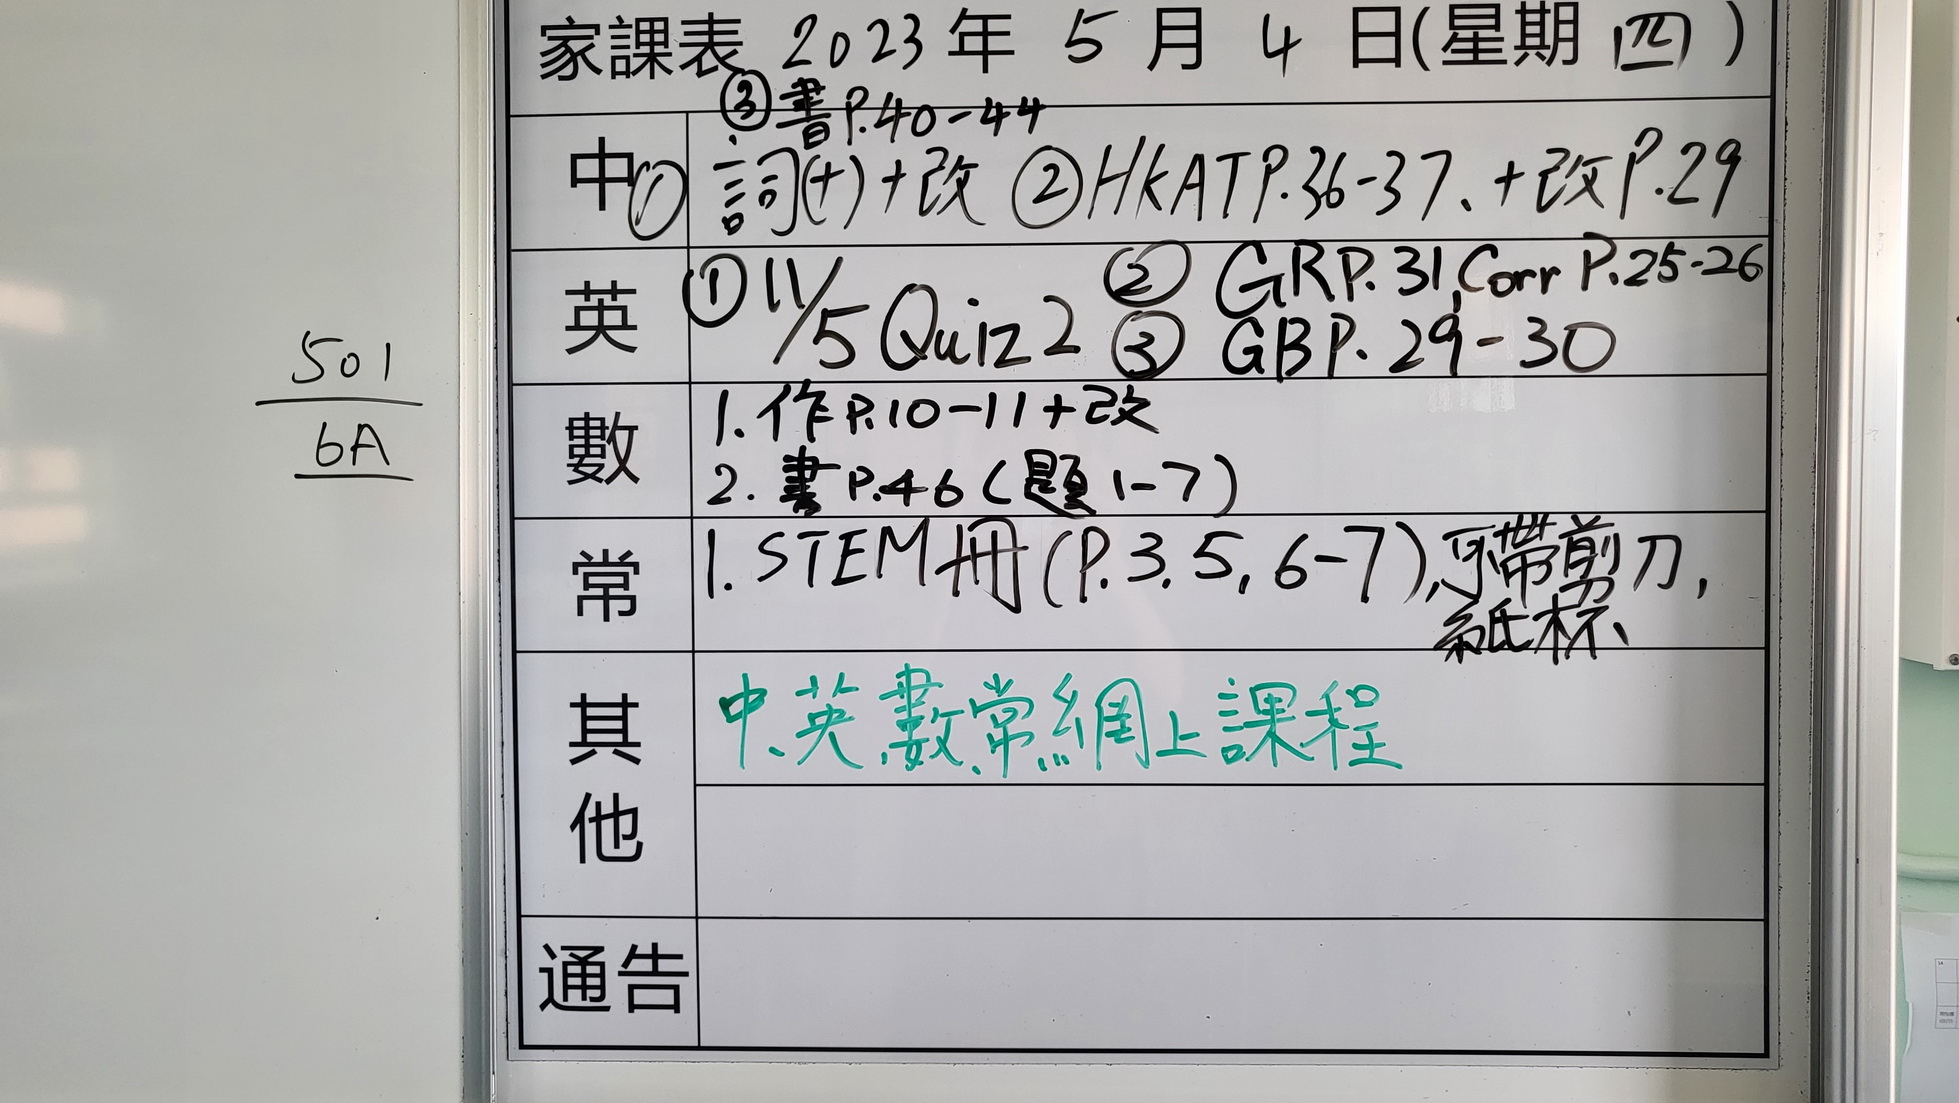 家課表 2023年 5月 4日(星期四)
③書P.40-44
中 ①詞(十)+改 ②HKATP.36-37、+改P.29
英 ①11/5 Quiz 2 ② GRP.31, Corr P.25-26
③ GBP.29-30
數 1. 作P.10-11+改
2. 書P.46(題1-7)
常 1. STEM冊(P.3, 5, 6-7), 帶剪刀,
紙杯、
其他 中、英、數、常網上課程
通告
501
6A